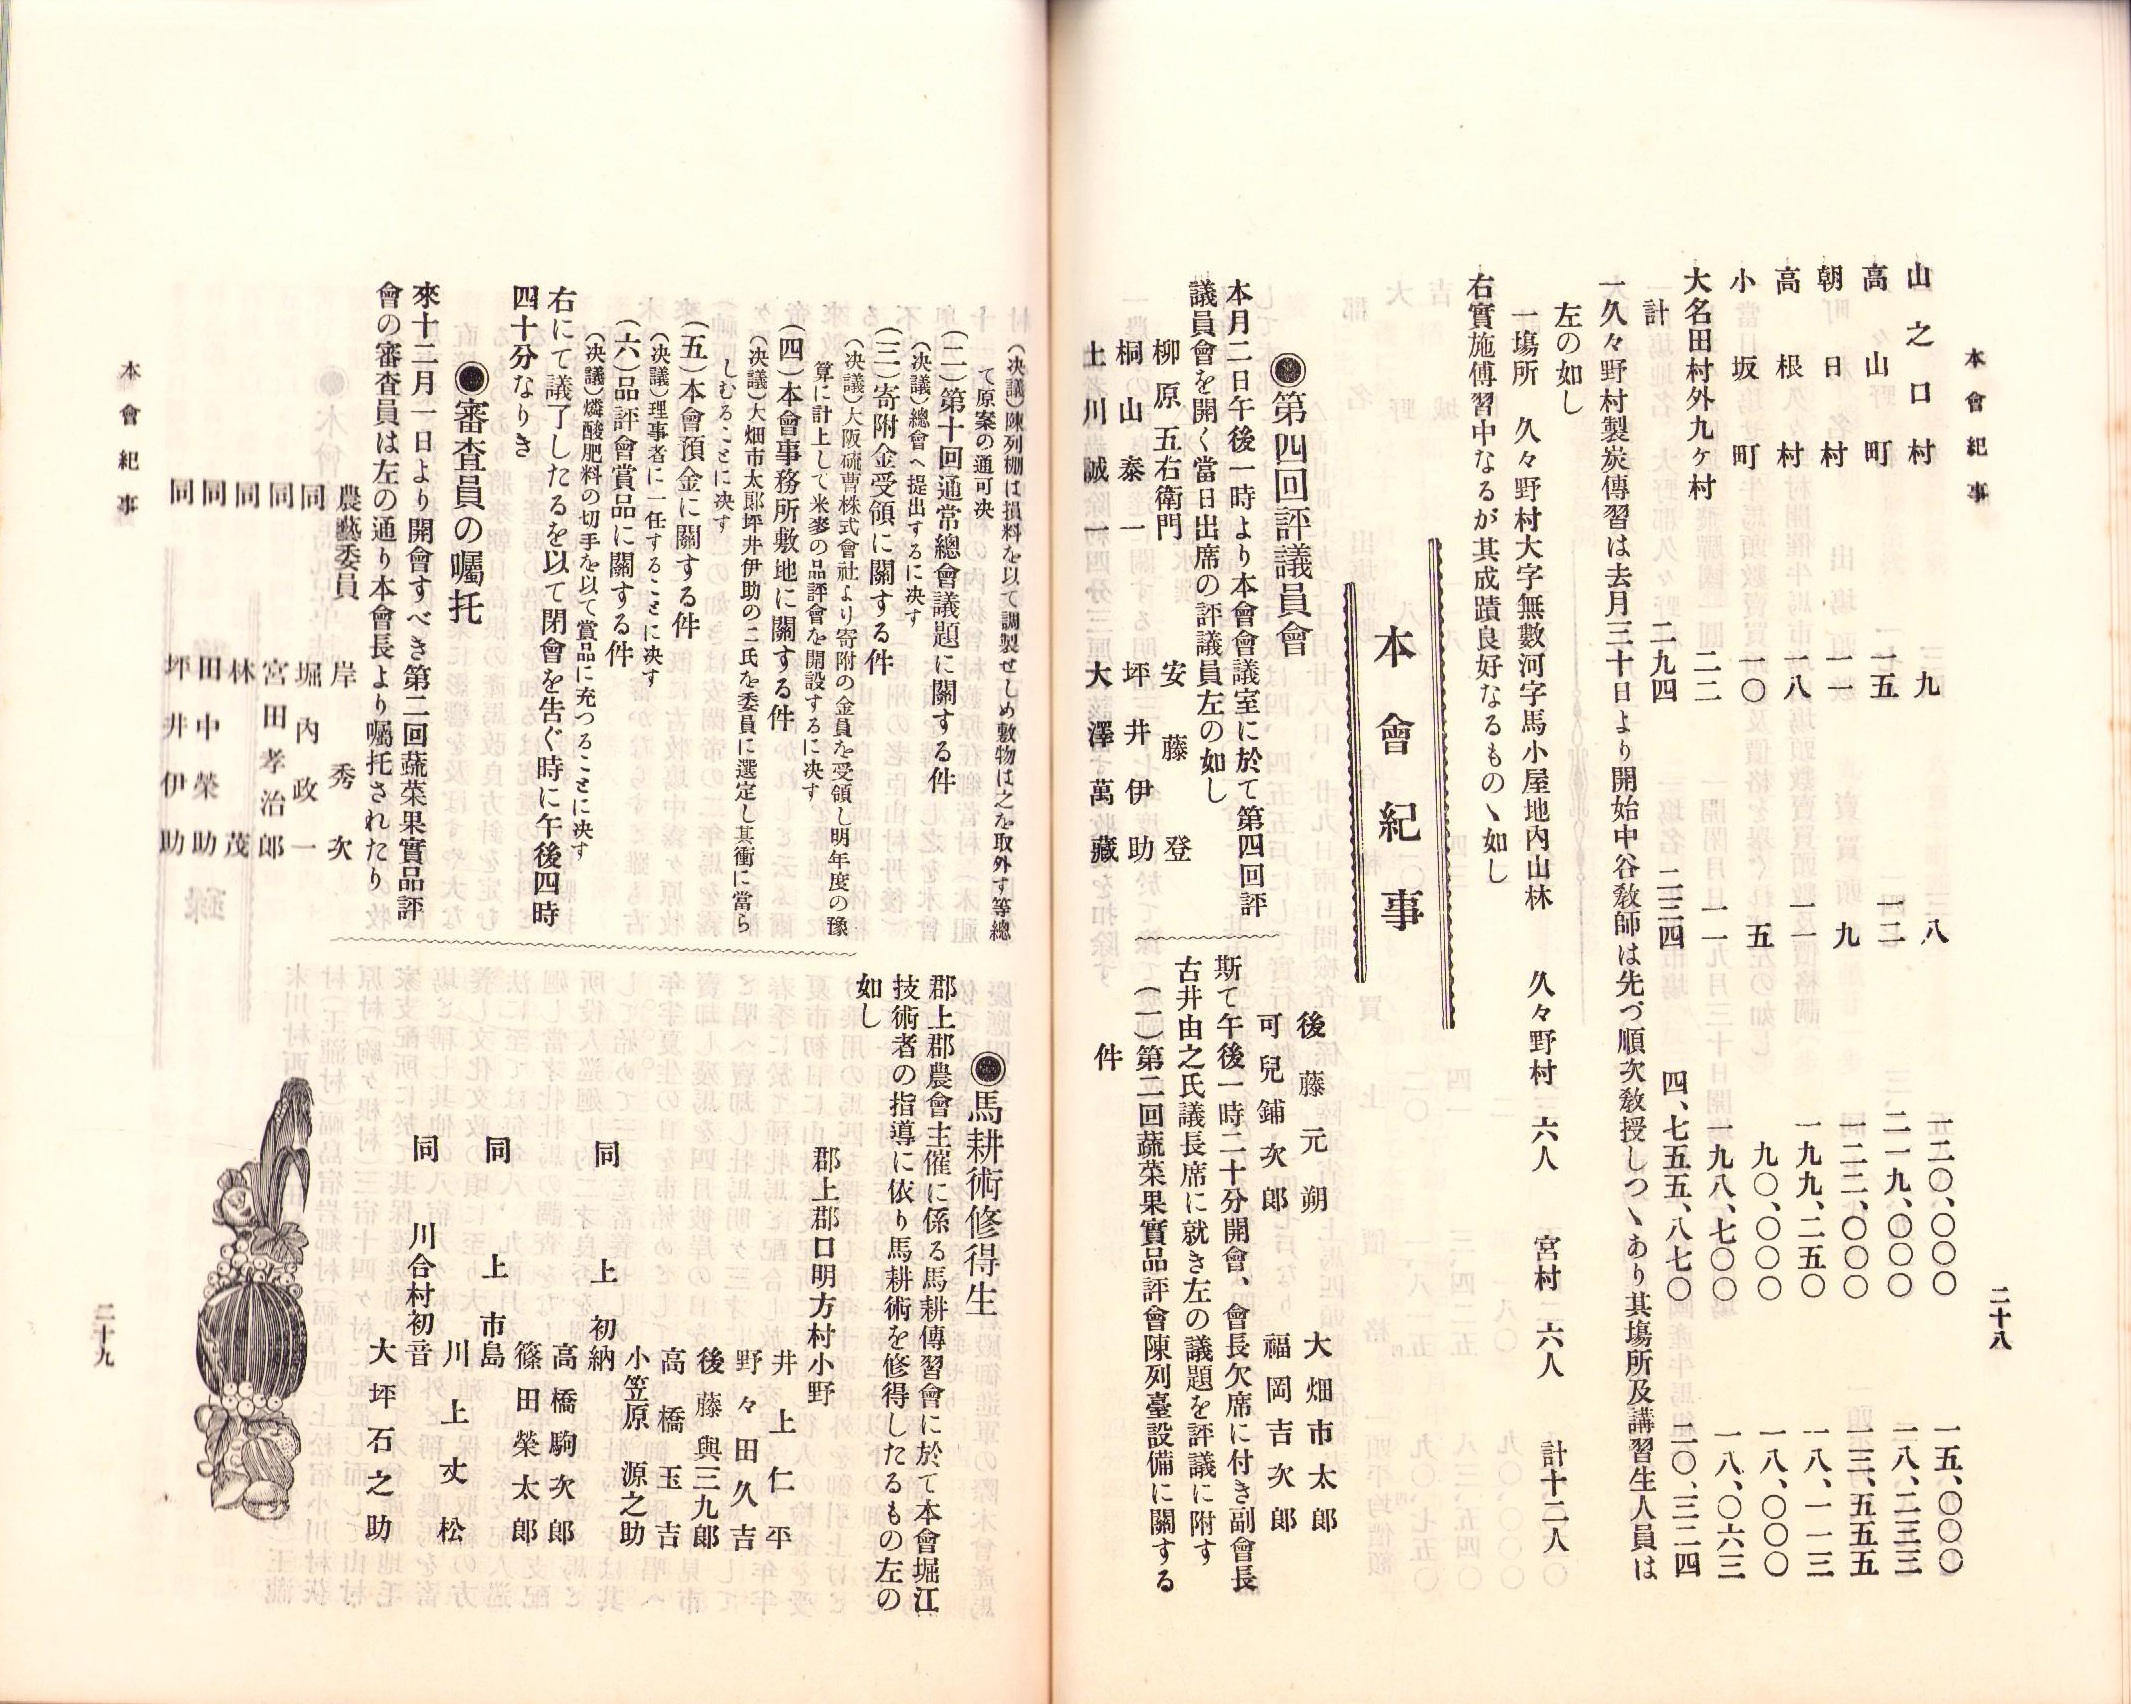 本會紀事
二十八
山之口村 九 八 一二〇、〇〇〇 一五、〇〇〇
高山町 一五 一二 二一九、〇〇〇 一八、二三三
朝日村 一一 九 一二二、〇〇〇 一三、五五五
高根村 一八 一一 一九九、二五〇 一八、一一三
小坂町 一〇 五 九〇、〇〇〇 一八、〇〇〇
大名田村外九ヶ村 二二 一一 一九八、七〇〇 一八、〇六三
計 二九四 二三四 四、七五五、八七〇 二〇、三二四
一久々野村製炭傳習は去月三十日より開始中谷敎師は先づ順次敎授しつゝあり其塲所及講習生人員は
左の如し
一塲所 久々野村大字無數河字馬小屋地内山林 久々野村 六人 宮村 六人 計十二人
右實施傳習中なるが其成蹟良好なるものゝ如し
本會紀事
◉第四回評議員會
本月二日午後一時より本會會議室に於て第四回評
議員會を開く當日出席の評議員左の如し
柳原五右衛門 安藤登
桐山泰一 坪井伊助
土川誠一 大澤萬藏
後藤元朔 大畑市太郎
可兒鋪次郎 福岡吉次郎
斯て午後一時二十分開會、會長欠席に付き副會長
古井由之氏議長席に就き左の議題を評議に附す
(一)第二回蔬菜果實品評會陳列臺設備に關する
件
(决議)陳列棚は損料を以て調製せしめ敷物は之を取外す等總
て原案の通可决
(二)第十回通常總會議題に關する件
(决議)總會へ提出するに决す
(三)寄附金受領に關する件
(决議)大阪硫曹株式會社より寄附の金員を受領し明年度の豫
算に計上して米麥の品評會を開設するに决す
(四)本會事務所敷地に關する件
(决議)大畑市太郎坪井伊助の二氏を委員に選定し其衝に當ら
しむることに决す
(五)本會預金に關する件
(决議)理事者に一任することに决す
(六)品評會賞品に關する件
(决議)燐酸肥料の切手を以て賞品に充つることに决す
右にて議了したるを以て閉會を告ぐ時に午後四時
四十分なりき
◉審査員の囑托
來十二月一日より開會すべき第二回蔬菜果實品評
會の審査員は左の通り本會長より囑托されたり
農藝委員 岸秀次
同 堀内政一
同 宮田孝治郎
同 林茂
同 田中榮助
同 坪井伊助
◉馬耕術修得生
郡上郡農會主催に係る馬耕傳習會に於て本會堀江
技術者の指導に依り馬耕術を修得したるもの左の
如し
郡上郡口明方村小野
井上仁平
野々田久吉
後藤與三九郎
高橋玉吉
小笠原源之助
同 上 初納
高橋駒次郎
篠田榮太郎
同 上 市島
川上丈松
同 川合村初音
大坪石之助
本會紀事
二十九